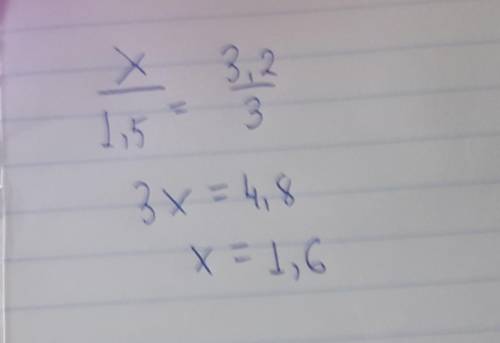 x/1,5 = 3,2/3
3x = 4,8
x = 1,6